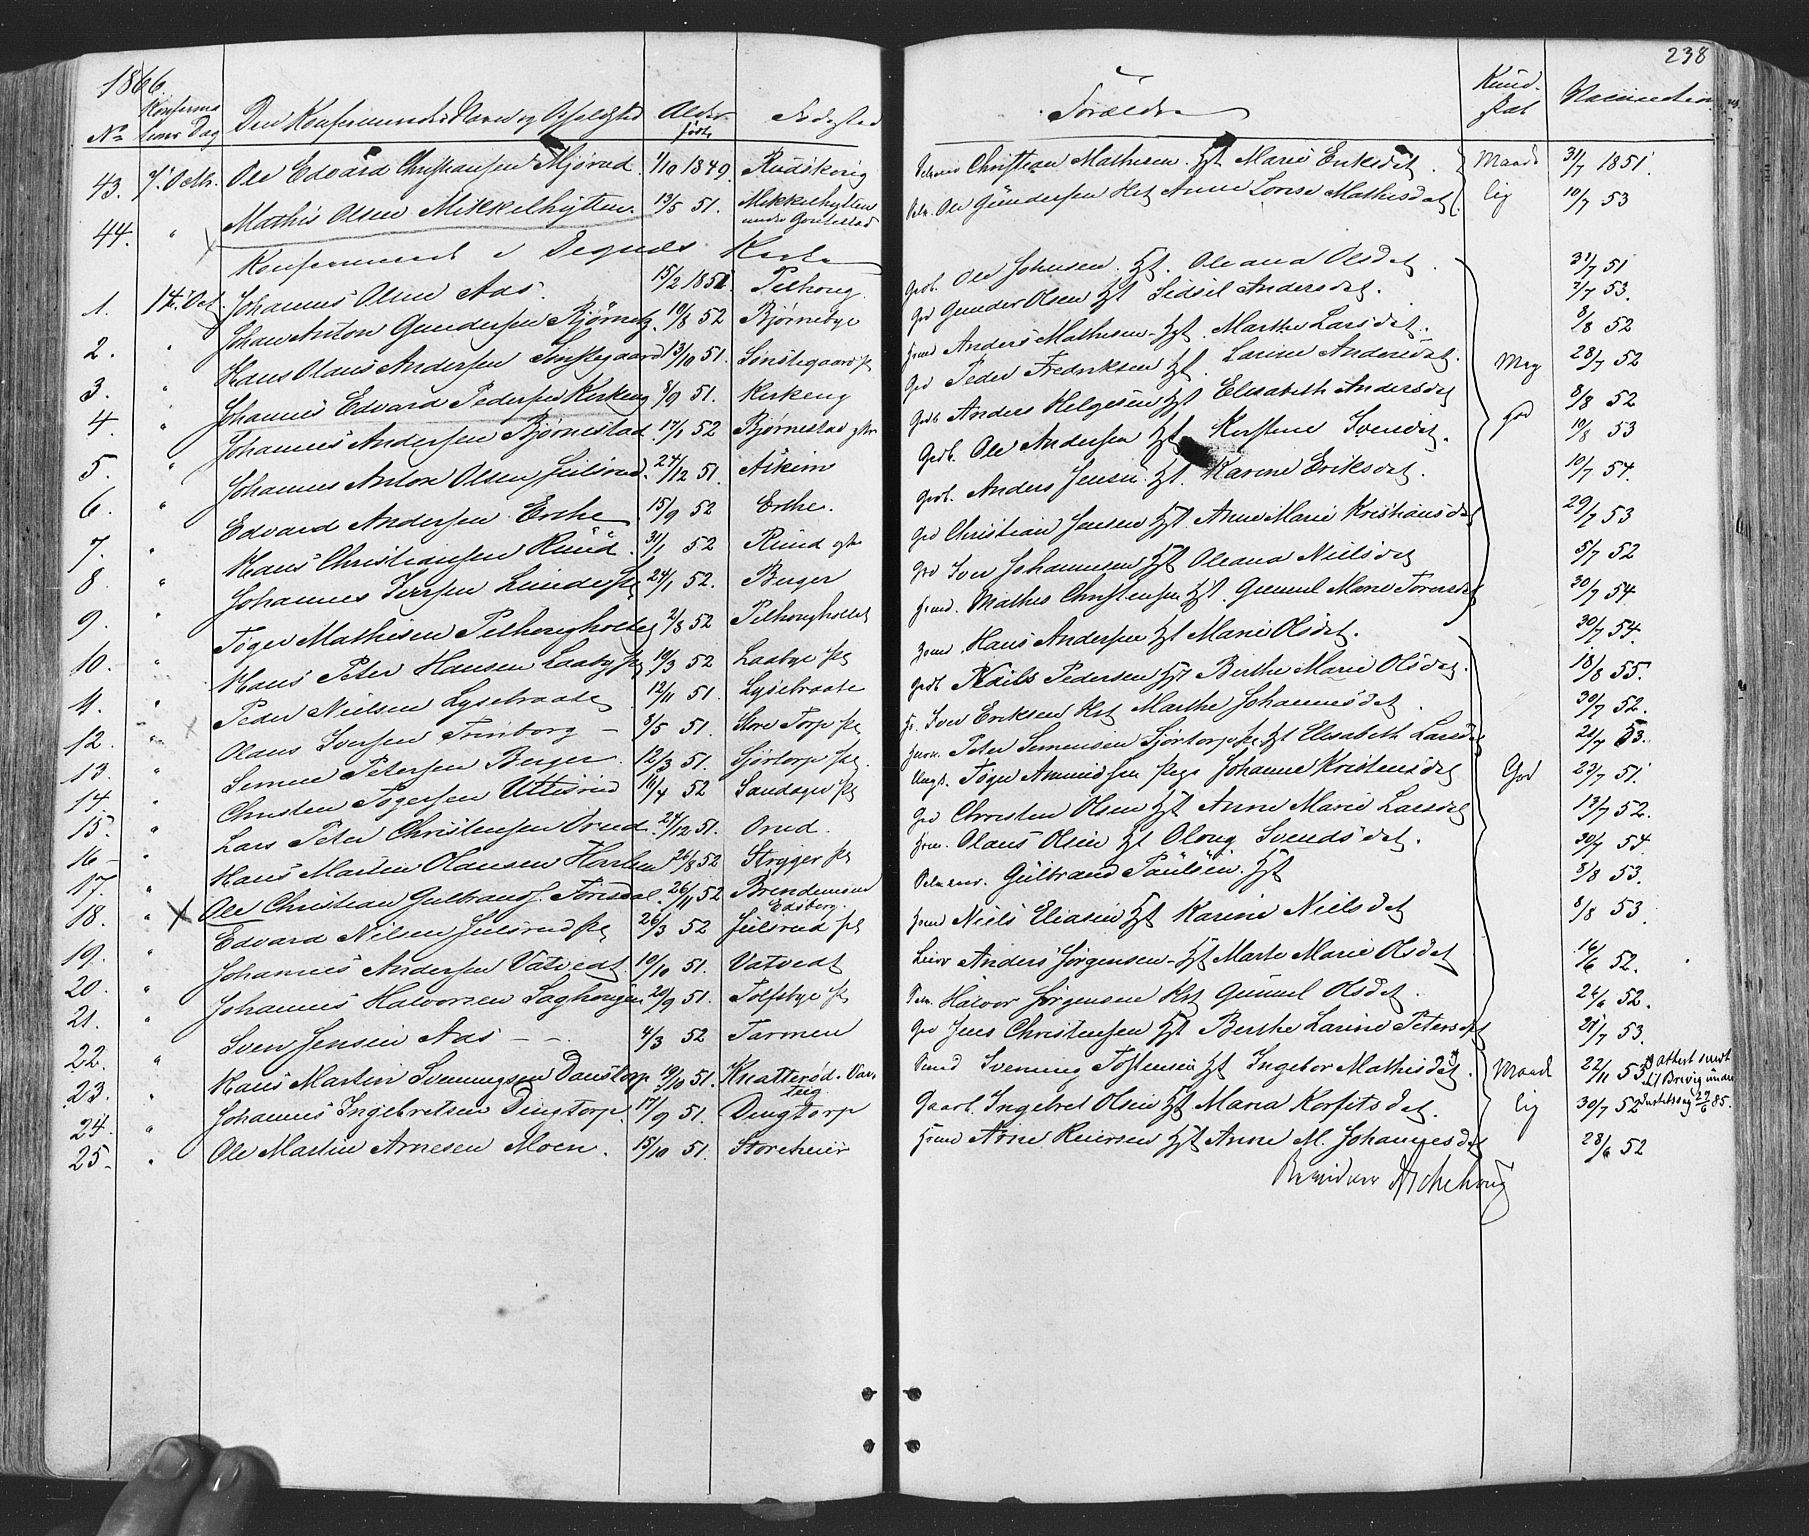 238
1866.
No Konfirmations Dag Den Konfirmeredes Navn og Opholdsted Alder født Fødested Forældre Kundskab Vaccination
43. 7. Octbr. Ole Edvard Christiansen Mjørud 1/10 1849. Rudskovig Christian Mathisen Hst Marie Eriksdat Maade 31/7 1851.
44. " Mathis Olsen Mikkelhytten. 13/5 51. Mikkelhytten under Ole Gundersen Hst Anne Lovise Mathisdat lig 10/7 53
Konfirmeret i Degnes Kirke
1. 14. Oct. Johannes Olsen Aas. 15/2 1851 Pilhoug Grdb. Ole Johnsen Hst. Oleana Olsdat. 31/7 51
2. " Johan Anton Gundersen Bjørneb. 19/8 52 Bjørnebye Grd Gunder Olsen Hst Sidsel Andersdat. 7/7 53.
3. " Hans Olaus Andersen Smstegaard 13/10 51. Smstegaard pl Anders Mathisen Hst. Marthe Larsdat. 8/8 52
4. " Johannes Edvard Pedersen Kirkeng 8/9 51. Kirkeng Grd Peder Fredriksen Hst. Larine Andersdat. Meg 28/7 52
5. " Johannes Andersen Bjørnestad 17/1 52 Bjørnestad Grdb Anders Helgesen Hst Elisabeth Andersdat god 8/8 52
6. " Johannes Anton Olsen Julsrud. 24/12 51. Askim Grdb. Ole Andersen Hst Kirstine Svendsdt. 10/8 53
7. " Edvard Andersen Erthe 15/9 52 Erthe. Grdb. Anders Jensen Hst. Karine Eriksdat. 10/7 54.
8. " Hans Christiansen Ruud. 31/1 52 Ruud Grd Christian Jensen Hst Anne Marie Kristiansdat 29/7 53
9. " Johannes Iversen 24/1 52. Berger Grd Iver Johannesen Hst Oleana Nielsdat 5/7 52
10. " Tøger Mathisen Pilhougholtet 2/8 52 Pilhougholtet Mathis Christensen Hst. Gunnul Marie 30/7 54.
11. " Hans Peter Hansen Laabye pl 19/3 52 Laabye pl Hans Andersen Hst Marie Olsdat. 30/7 54.
12. " Peder Nielsen Lysebraate 12/11 51. Lysebraate Grdb Niels Pedersen Hst Berthe Marie Olsdat. 18/8 55.
13. " Olaus Iversen Trinborg 3/5 51. Store Torp pl Iver Eriksen Hst Marthe Johannesdat 30/7 52.
14. " Petersen Berger. 12/3 51. Sjørtorp pl. Peter Sjørtorp pl Hst Elisabeth Larsdat 21/7 53.
15. " Christen Tøgersen Uttisrud 16/4 52 Sandager pl Ungk. Tøger Amundsen Pige Johanne Kristensdat God 23/7 51.
16 " Lars Peter Christensen Orud. 24/12 51. Orud. Grd Christen Olsen Hst Anne Marie Larsdat 13/7 52.
17. " Hans Martin Olausen Harlem 26/8 52 Strygger pl Olaus Olsen Hst Oloug Svendsdat. 30/7 54
18. " Ole Christian Gulbrands. Torisdal. 26/11 52 Edsberg. Gulbrand Paulsen. Hst 8/8 53.
19. " Edvard Nilsen Julsrud pl 26/3 52 Julsrud pl Niels Eliasen Hst Karine Nielsdat 8/8 53
20. " Johannes Andersen Vatvedt 19/10 51. Vatvedt Anders Jørgensen Hst Marte Marie Olsdat 16/6 52.
21. " Johannes Halvorsen Saghougen 20/9 51. Tolfsbye pl Halvor Jørgensen Hst Gunnul Olsdat. 26/6 52.
22. " Sven Jensen Aas 4/3 52 Tarmen Grd Jens Christensen Hst Berthe Larine Petersdat 21/7 53.
23. " Hans Martin Svenningsen Danstorp 19/10 51. Knatterød. Svenning Tostensen Hst Ingebor Mathisdat. Maade 22/11 53 Attest sendt til Brevig
24. " Johannes Ingebretsen Dingtorp. 17/9 51. Dingtorp Gaarb. Ingebret Olsen Hst Maria Korfitsdat. lig 30/7 52 29/6 85.
25. " Ole Martin Arnesen Moen. 15/10 51. Storeheier Arne Reiersen Hst Anne M. Johannesdat 28/6 52